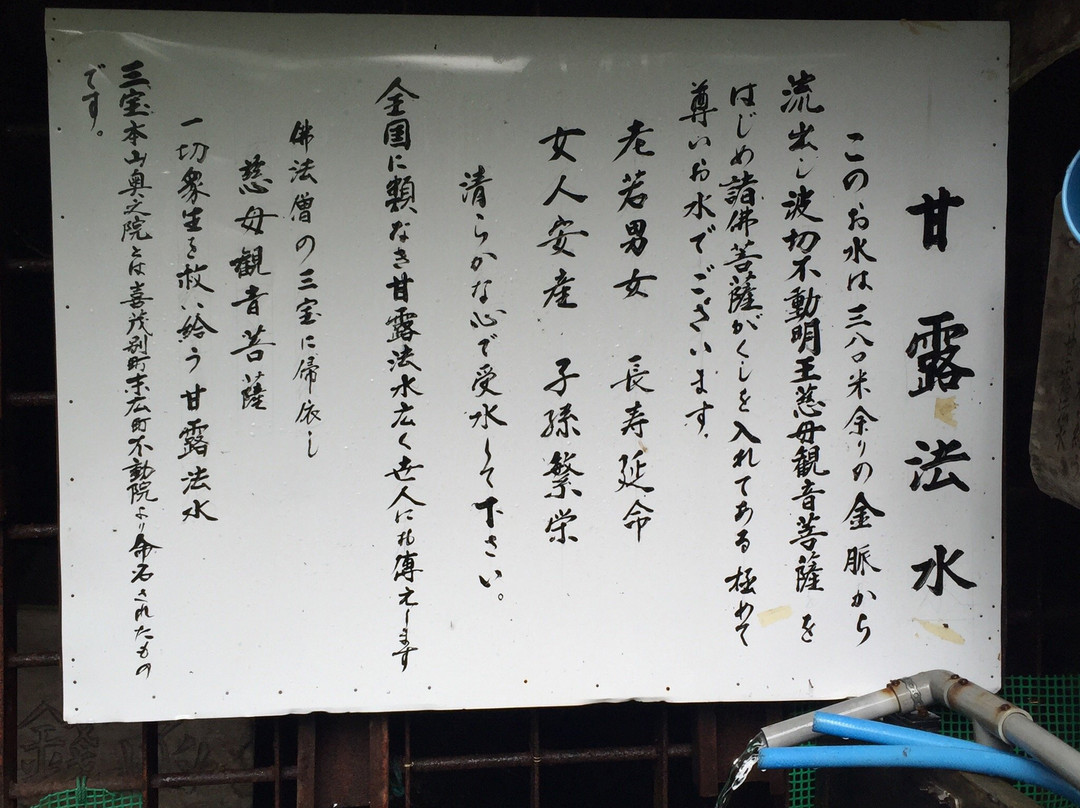 甘露法水
このお水は三八〇米余りの金脈から
流出し波切不動明王慈母観音菩薩を
はじめ諸佛菩薩がくしを入れてある極めて
尊いお水でございます.
老若男女 長寿延命
女人安産 子孫繁栄
清らかな心で受水して下さい。
全国に類なき甘露法水広く世人にも傳えします
佛法僧の三宝に帰依し
慈母観音菩薩
一切衆生を救い給う甘露法水
三宝本山奥之院とは喜茂別町末広町不動院より命名されたもの
です。